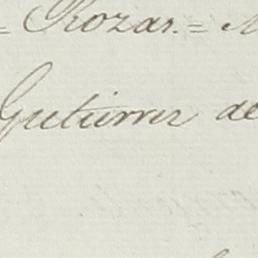 = Rozas. =
Gutierrez de